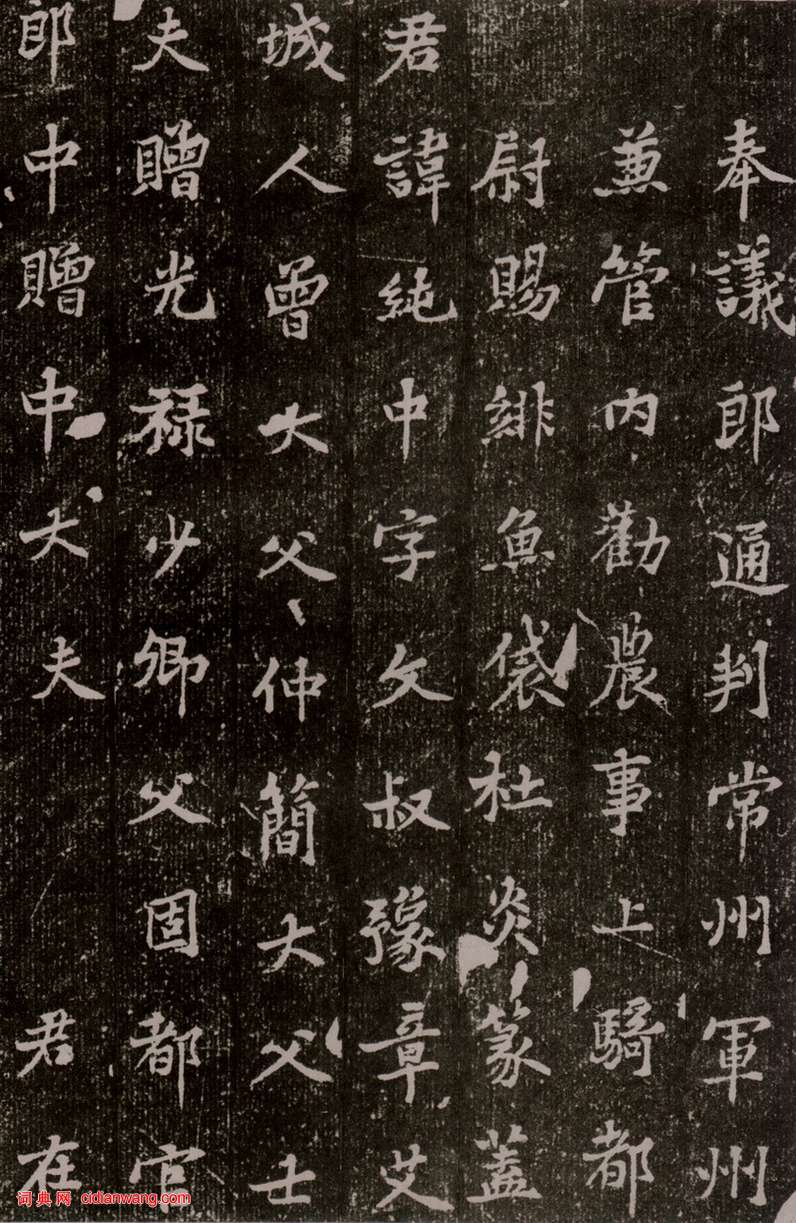 奉議郎通判常州軍州
兼管内勸農事上騎都
尉賜緋魚袋杜炎篆蓋
君諱純中字文叔豫章艾
城人曾大父仲簡大父士
夫贈光禄少卿父固都官
郎中贈中大夫 君在
词典网 cidianwang.com